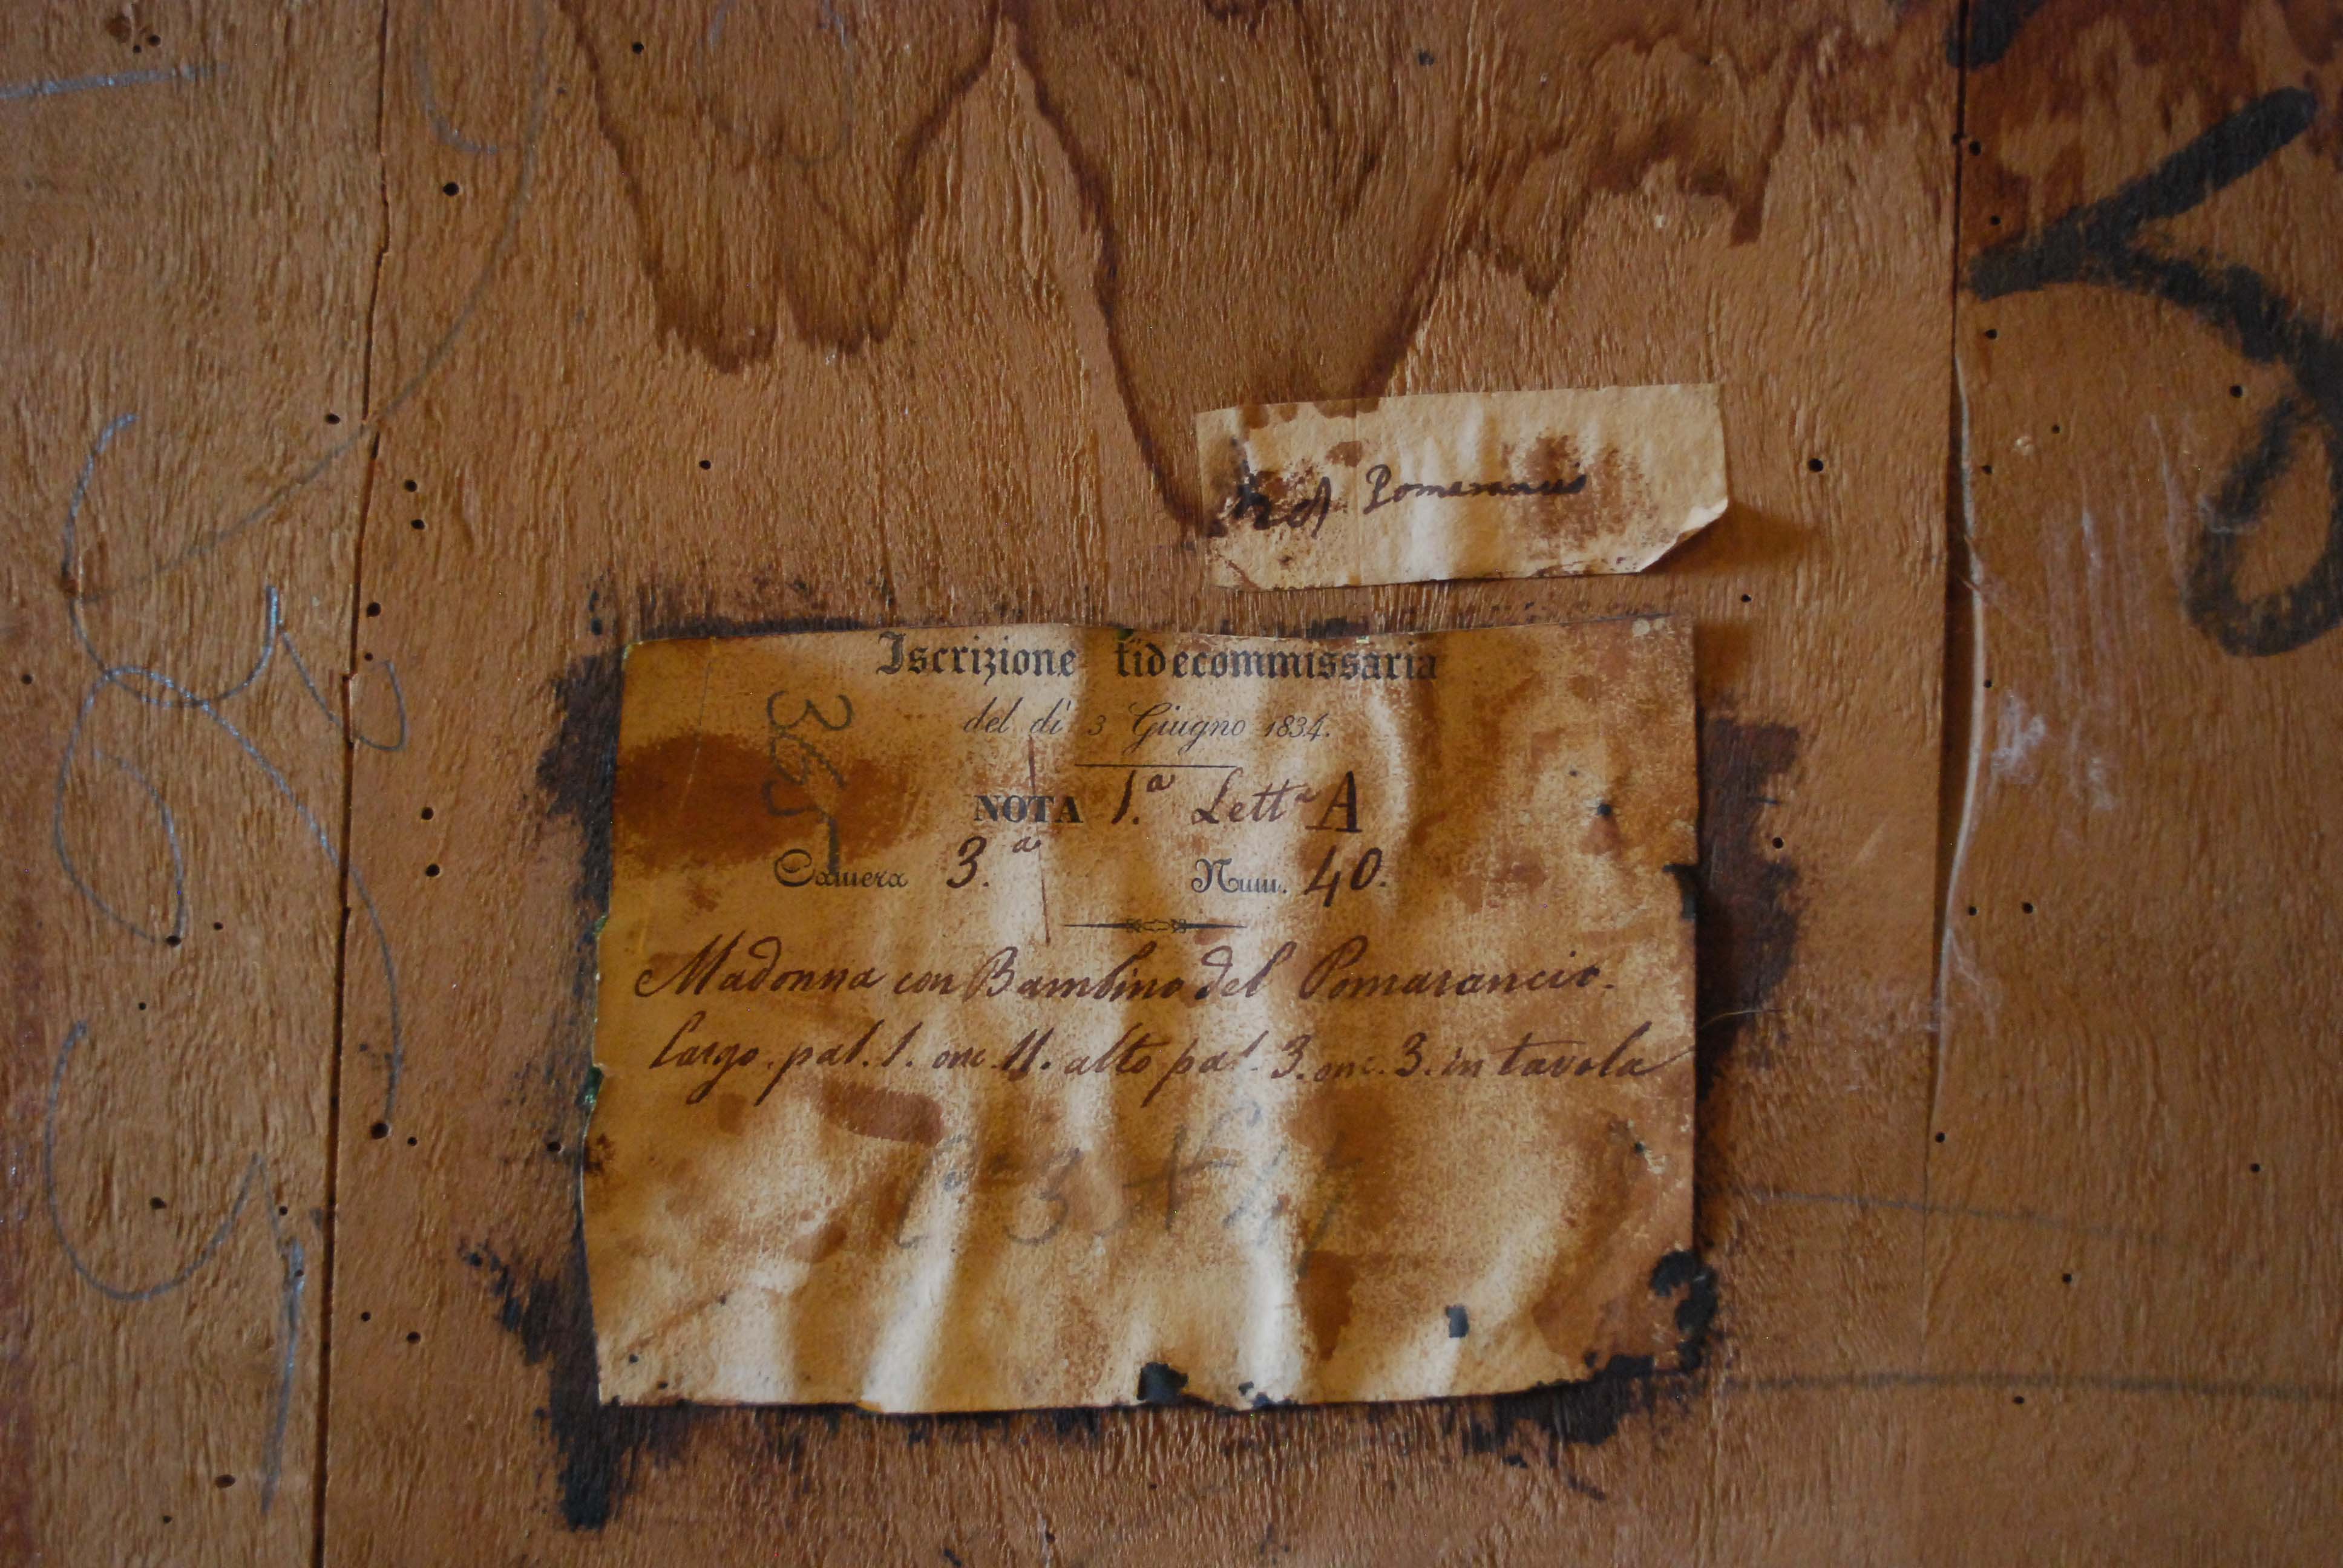 Pomarancio
Iscrizione fidecommissaria
del dì 3 Giugno 1834.
365
NOTA 1.ª Lettª A
Camera 3.ª Num. 40.
Madonna con Bambino del Pomarancio.
Largo. pal. 1. onc. 11. alto pal. 3. onc. 3. in tavola